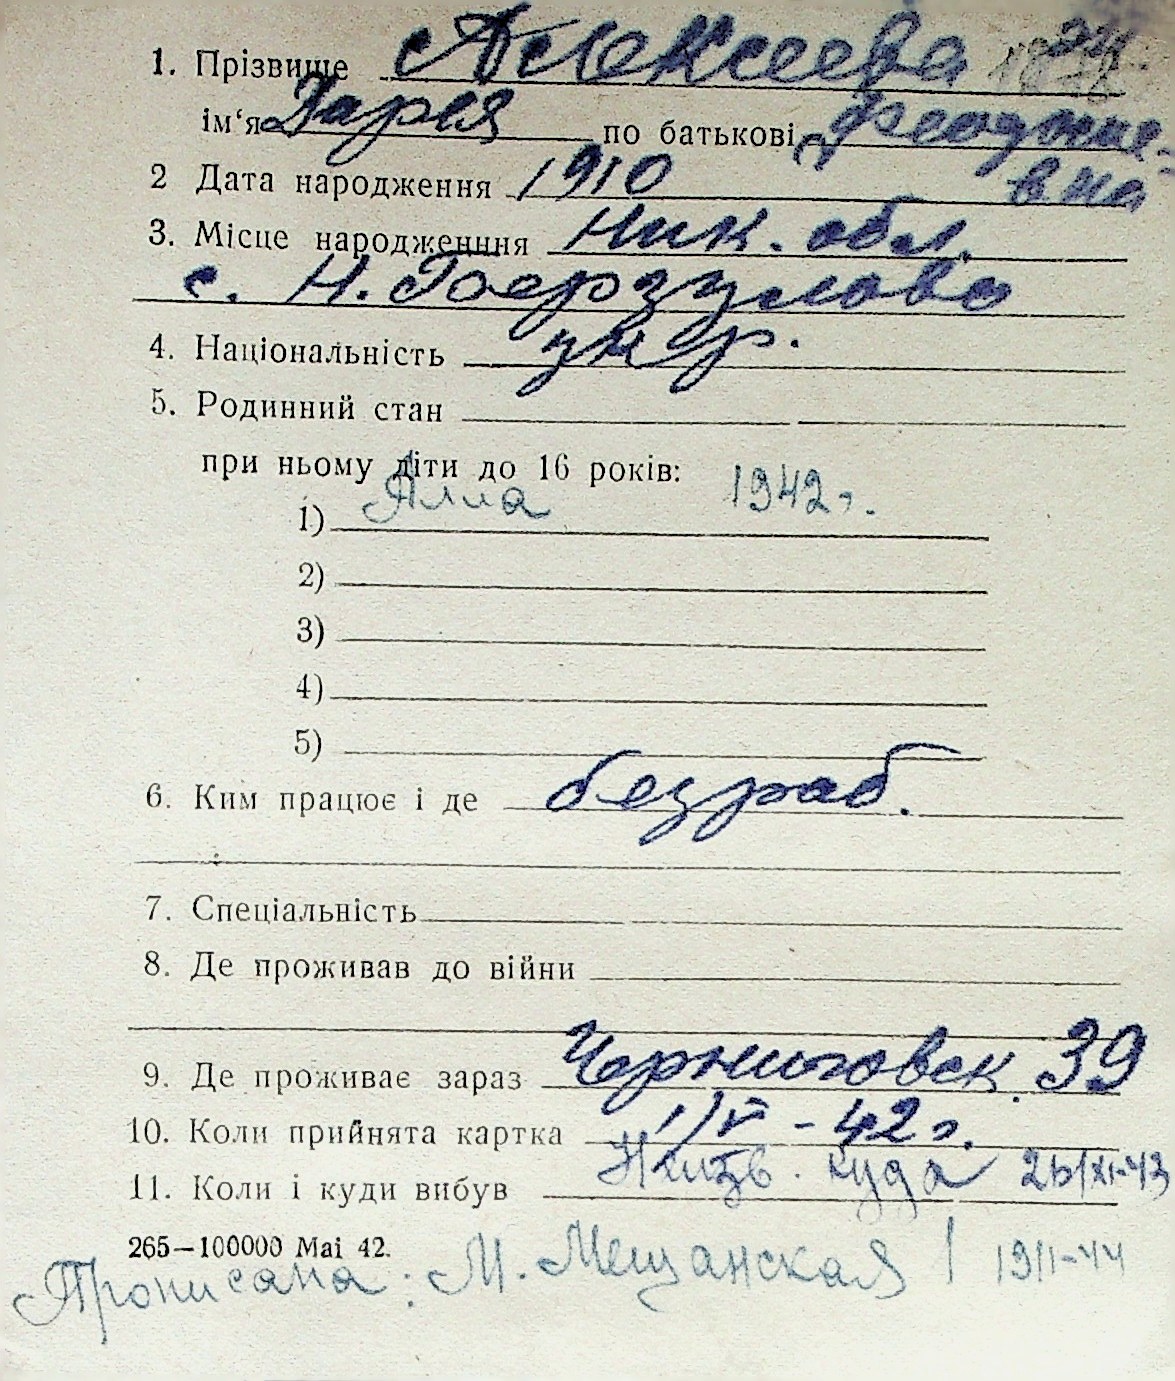 1. Прізвище Алексеева
ім‘я Дарья по батькові Феодосие-
вна
2 Дата народження 1910
3. Місце народженння Ник. обл.
с. Н. Гоерзулово
4. Національність укр.
5. Родинний стан
при ньому діти до 16 років:
1) Алла 1942 г.
2)
3)
4)
5)
6. Ким працює і де безраб.
7. Спеціальність
8. Де проживав до війни
9. Де проживає зараз Черниговск. 39
10. Коли прийнята картка 1/V - 42 г.
11. Коли і куди вибув Неизв. куда 26/XI-43
265—100000 Mai 42.
Прописана: М. Мещанская 1 19/I-44